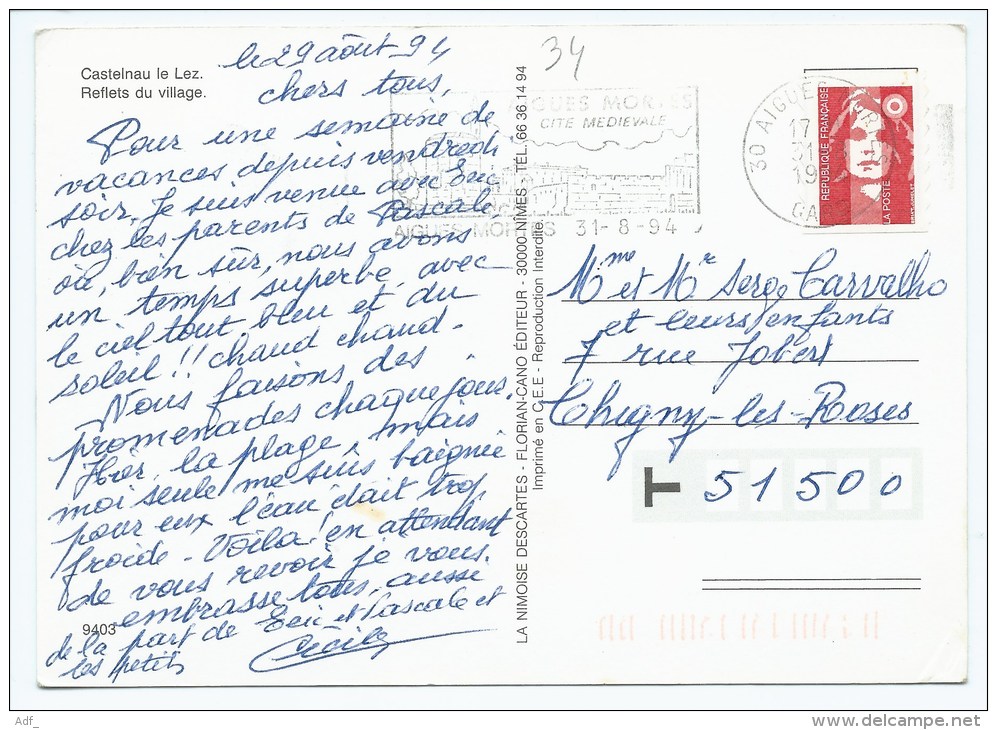 Castelnau le Lez.
Reflets du village.
le 29 août 94
chers tous,
Pour une semaine de
vacances depuis vendredi
soir, je suis venue avec Eric
chez les parents de Pascale,
où, bien sûr, nous avons
un temps superbe, avec
le ciel tout bleu et du
soleil !! chaud chaud -
Nous faisons des
promenades chaque jour.
Hier, la plage, mais
moi seule me suis baignée
pour eux l'eau était trop
froide - Voilà ! en attendant
de vous revoir je vous
embrasse tous, aussi
de la part de Eric et Pascale et
les petits
Cécile
9403
LA NIMOISE DESCARTES - FLORIAN-CANO ÉDITEUR - 30000 NÎMES - TÉL. 66 36 14 94
Imprimé en C.E.E - Reproduction Interdite.
34
AIGUES MORTES
CITE MEDIEVALE
AIGUES MORTES 31-8-94
30 AIGUES
17
31
19
GA
REPUBLIQUE FRANÇAISE
LA POSTE
Mme et Mr Serge Carvalho
et leurs enfants
7 rue Jobert
Chigny-les-Roses
T 51500
Adf_
delcampe.net